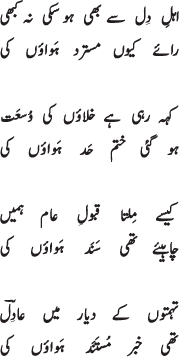 اہلِ دِل سے بھی ہو سکی نہ کبھی
رائے کیوں مسترد ہَواؤں کی
کہہ رہی ہے خلاؤں کی وُسعَت
ہو گئی ختم حَد ہَواؤں کی
کیسے مِلتا قبولِ عام ہمیں
چاہیئے تھی سَنَد ہَواؤں کی
تہمتوں کے دیار میں عادِلؔ
تھی خبر مُستَنَد ہَواؤں کی